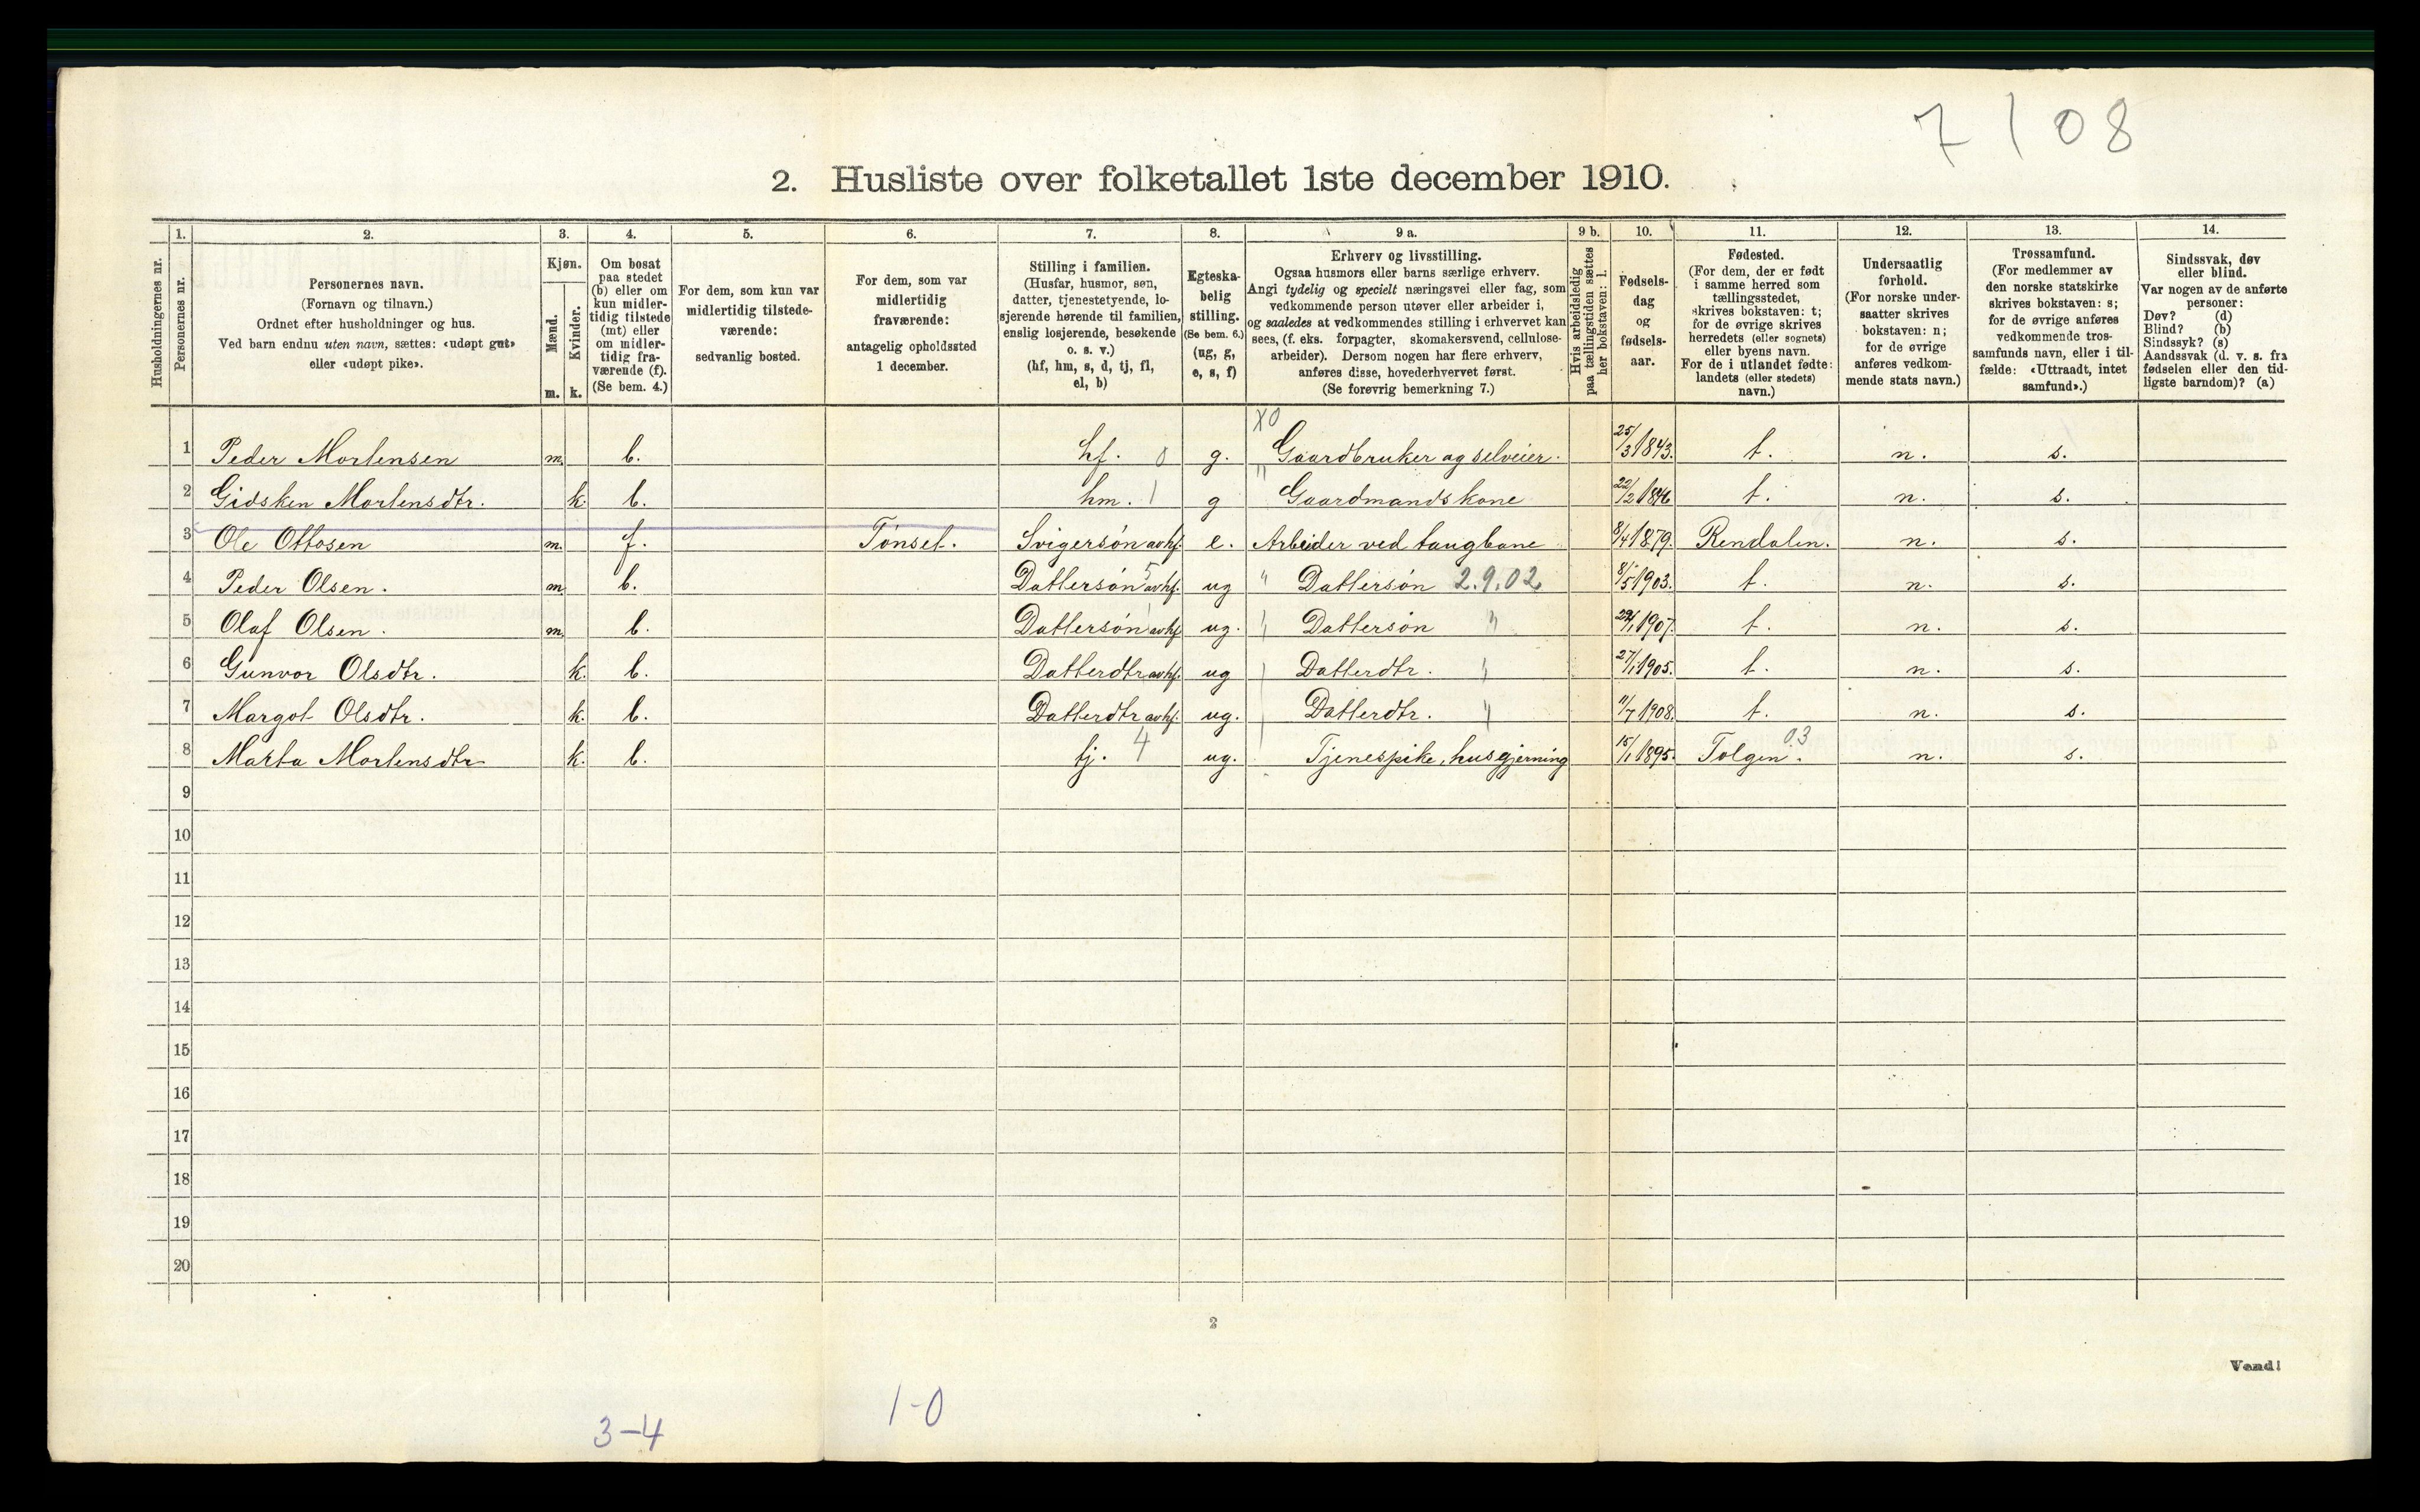 7 108
2. Husliste over folketallet 1ste december 1910.
Husholdningernes nr.
1.
Personernes nr.
2.
Personernes navn.
(Fornavn og tilnavn.)
Ordnet efter husholdninger og hus.
Ved barn endnu uten navn, sættes: «udøpt gut»
eller «udøpt pike».
3.
Kjøn.
Mænd.
m.
Kvinder.
k.
4.
Om bosat
paa stedet
(b) eller om
kun midler-
tidig tilstede
(mt) eller
om midler-
tidig fra-
værende (f).
(Se bem. 4.)
5.
For dem, som kun var
midlertidig tilstede-
værende:
sedvanlig bosted.
6.
For dem, som var
midlertidig
fraværende:
antagelig opholdssted
1 december.
7.
Stilling i familien.
(Husfar, husmor, søn,
datter, tjenestetyende, lo-
sjerende hørende til familien,
enslig losjerende, besøkende
o. s. v.)
(hf, hm, s, d, tj, fl,
el, b)
8.
Egteska-
belig
stilling.
(Se bem. 6.)
(ug, g,
e, s, f)
9 a.
Erhverv og livsstilling.
Ogsaa husmors eller barns særlige erhverv.
Angi tydelig og specielt næringsvei eller fag, som
vedkommende person utøver eller arbeider i,
og saaledes at vedkommendes stilling i erhvervet kan
sees, (f. eks. forpagter, skomakersvend, cellulose-
arbeider). Dersom nogen har flere erhverv,
anføres disse, hovederhvervet først.
(Se forøvrig bemerkning 7.)
9 b.
Hvis arbeidsledig
paa tællingstiden sættes
her bokstaven: l.
10.
Fødsels-
dag
og
fødsels-
aar.
11.
Fødested.
(For dem, der er født
i samme herred som
tællingsstedet,
skrives bokstaven: t;
for de øvrige skrives
herredets (eller sognets)
eller byens navn.
For de i utlandet fødte:
landets (eller stedets)
navn.)
12.
Undersaatlig
forhold.
(For norske under-
saatter skrives
bokstaven: n;
for de øvrige
anføres vedkom-
mende stats navn.)
13.
Trossamfund.
(For medlemmer av
den norske statskirke
skrives bokstaven: s;
for de øvrige anføres
vedkommende tros-
samfunds navn, eller i til-
fælde: «Uttraadt, intet
samfund».)
14.
Sindssvak, døv
eller blind.
Var nogen av de anførte
personer:
Døv? (d)
Blind? (b)
Sindssyk? (s)
Aandssvak (d. v. s. fra
fødselen eller den tid-
ligste barndom)? (a)
X0
1 Peder Mortensen m. b. hf. 0 g. Gaardbruker og selveier. 25/3 1843. t. n. s.
2 Gidsken Mortensdtr. k. b. hm. 1 g " Gaardmandskone 22/2 1846 t. n. s.
3 Ole Ottosen m. f. Tønset. Svigersøn av hf. e. Arbeider ved taugbane 8/4 1879. Rendalen. n. s.
4 Peder Olsen. m b. Dattersøn av hf. 5 ug " Dattersøn 2.9.02 8/5 1903. t. n. s.
5 Olaf Olsen. m. b. Dattersøn av hf ug. " Dattersøn " 1907. t. n. s.
6 Gunvor Olsdtr. k. b. Datterdtr av hf. ug Datterdtr. " 27/1 1905. t. n. s.
7 Margot Olsdtr. k. b. Datterdtr av hf. ug. Datterdtr. " 11/7 1908. t. n. s.
8 Marta Mortensdtr k. b. tj. 4 ug. Tjenespike, husgjerning 15/1 1895. Tolgen. 03 n. s.
9
10
11
12
13
14
15
16
17
18
19
20
2
Vend!
3-4
1-0